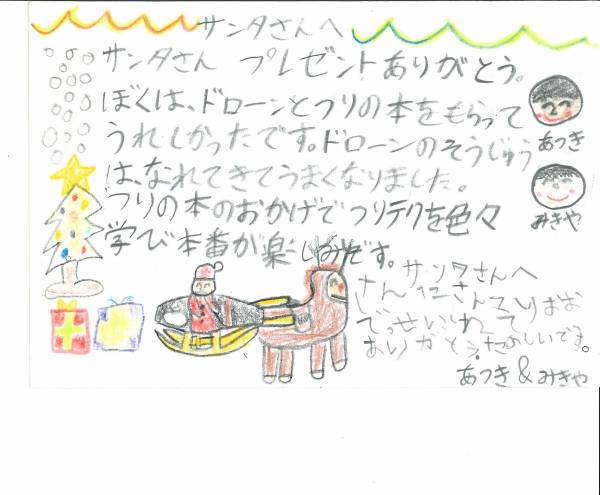 サンタさんへ
サンタさん プレゼントありがとう。
ぼくは、ドローンとつりの本をもらって
うれしかったです。ドローンのそうじゅう
は、なれてきてうまくなりました。
つりの本のおかげでつりテクを色々
学び本番が楽しみです。
あつき
みきや
サンタさんへ
ありがとう。たのしいです。
あつき&みきや